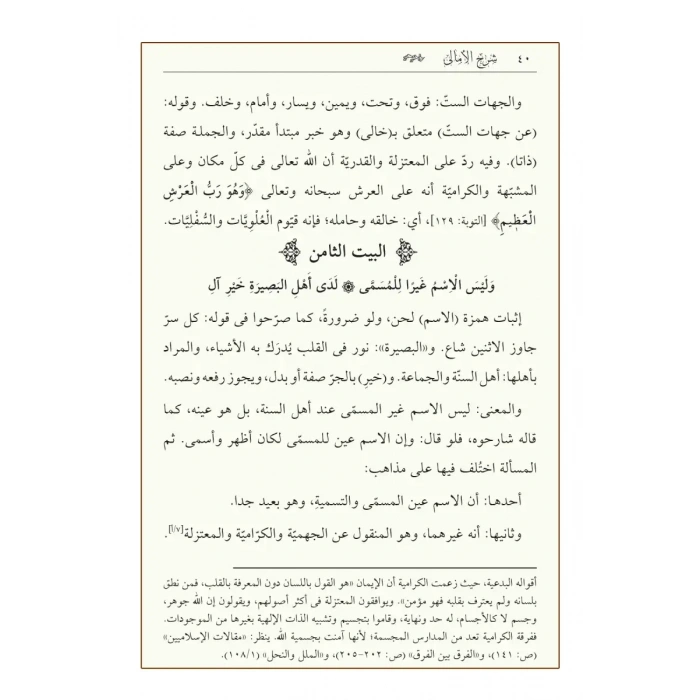 ٤٠ شرح الأمالي
والجهات الستّ: فوق، وتحت، ويمين، ويسار، وأمام، وخلف. وقوله:
(عن جهات الستّ) متعلق بـ(خالى) وهو خبر مبتدأ مقدّر، والجملة صفة
(ذاتا). وفيه ردّ على المعتزلة والقدريّة أن الله تعالى فى كلّ مكان وعلى
المشبّهة والكرامية أنه على العرش سبحانه وتعالى ﴿وَهُوَ رَبُّ الْعَرْشِ
الْعَظِيمِ﴾ [التوبة: ١٢٩]، أي: خالقه وحامله؛ فإنه قيّوم العُلْوِيَّات والسُّفْلِيَّات.
البيت الثامن
وَلَيْسَ الْاِسْمُ غَيرًا لِلْمُسَمَّى ۞ لَدَى أَهْلِ البَصِيرَةِ خَيْرِ آلِ
إثبات همزة (الاسم) لحن، ولو ضرورةً، كما صرّحوا فى قوله: كل سرّ
جاوز الاثنين شاع. و«البصيرة»: نور فى القلب يُدرَك به الأشياء، والمراد
بأهلها: أهل السنّة والجماعة. و(خيرِ) بالجرّ صفة أو بدل، ويجوز رفعه ونصبه.
والمعنى: ليس الاسم غير المسمّى عند أهل السنة، بل هو عينه، كما
قاله شارحوه، فلو قال: وإن الاسم عين للمسمّى لكان أظهر وأسمى. ثم
المسألة اختُلف فيها على مذاهب:
أحدها: أن الاسم عين المسمّى والتسميةِ، وهو بعيد جدا.
وثانيها: أنه غيرهما، وهو المنقول عن الجهميّة والكرّاميّة والمعتزلة[٧/أ].
أقواله البدعية، حيث زعمت الكرامية أن الإيمان «هو القول باللسان دون المعرفة بالقلب، فمن نطق
بلسانه ولم يعترف بقلبه فهو مؤمن». ويوافقون المعتزلة فى أكثر أصولهم، ويقولون إن الله جوهر،
وجسم لا كالأجسام، له حد ونهاية، وقاموا بتجسيم وتشبيه الذات الإلهية بغيرها من الموجودات.
ففرقة الكرامية تعد من المدارس المجسمة؛ لأنها آمنت بجسمية الله. ينظر: «مقالات الإسلاميين»
(ص: ١٤١)، و«الفرق بين الفرق» (ص: ٢٠٢-٢٠٥)، و«الملل والنحل» (١٠٨/١).